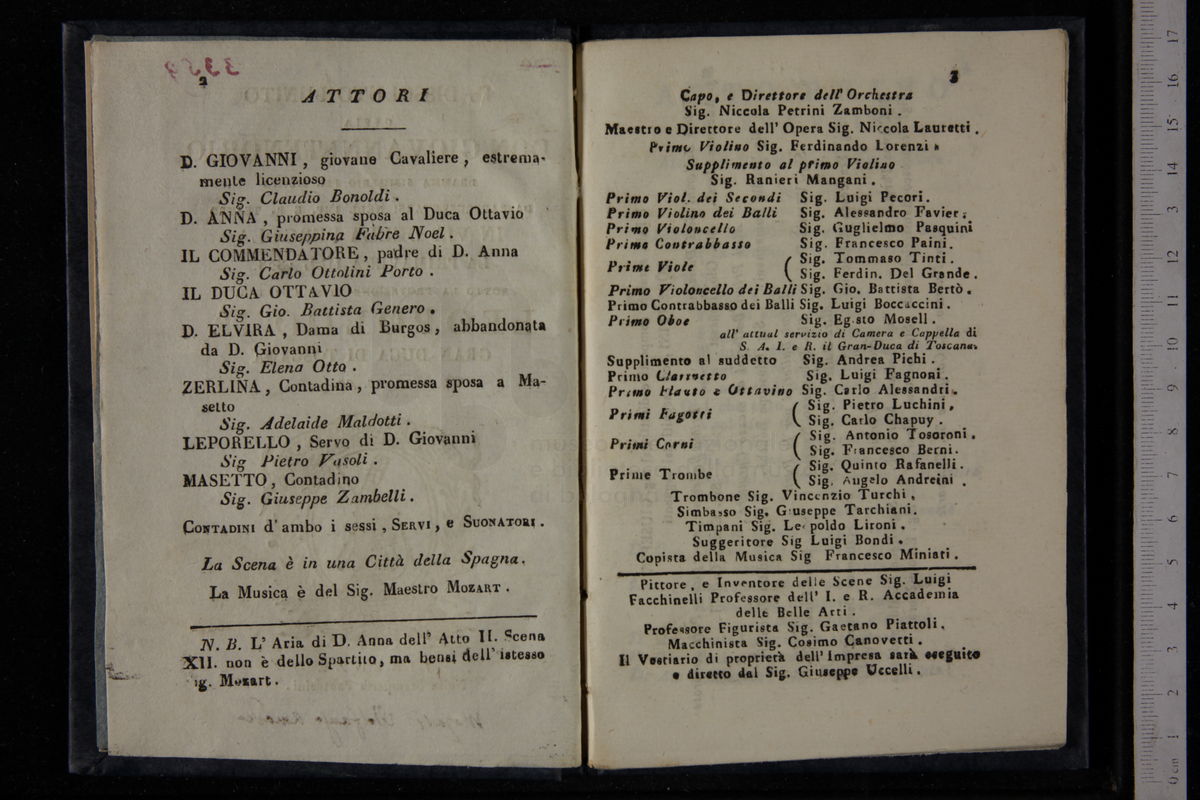 2
ATTORI
D. GIOVANNI, giovane Cavaliere, estrema-
mente licenzioso
Sig. Claudio Bonoldi.
D. ANNA, promessa sposa al Duca Ottavio
Sig. Giuseppina Fabre Noel.
IL COMMENDATORE, padre di D. Anna
Sig. Carlo Ottolini Porto.
IL DUCA OTTAVIO
Sig. Gio. Battista Genero.
D. ELVIRA, Dama di Burgos, abbandonata
da D. Giovanni
Sig. Elena Otto.
ZERLINA, Contadina, promessa sposa a Ma-
setto
Sig. Adelaide Maldotti.
LEPORELLO, Servo di D. Giovanni
Sig Pietro Vasoli.
MASETTO, Contadino
Sig. Giuseppe Zambelli.
CONTADINI d'ambo i sessi, SERVI, e SUONATORI.
La Scena è in una Città della Spagna.
La Musica è del Sig. Maestro MOZART.
N. B. L'Aria di D. Anna dell' Atto II. Scena
XII. non è dello Spartito, ma bensì dell'istesso
ig. Mozart.
3
Capo, e Direttore dell' Orchestra
Sig. Niccola Petrini Zamboni.
Maestro e Direttore dell' Opera Sig. Niccola Lauretti.
Primo Violino Sig. Ferdinando Lorenzi
Supplimento al primo Violino
Sig. Ranieri Mangani.
Primo Viol. dei Secondi Sig. Luigi Pecori.
Primo Violino dei Balli Sig. Alessandro Favier.
Primo Violoncello Sig. Guglielmo Pasquini
Primo Contrabbasso Sig. Francesco Paini.
Prime Viole ( Sig. Tommaso Tinti.
( Sig. Ferdin. Del Grande.
Primo Violoncello dei Balli Sig. Gio. Battista Bertò.
Primo Contrabbasso dei Balli Sig. Luigi Boccaccini.
Primo Oboe Sig. Egisto Mosell.
all' attual servizio di Camera e Cappella di
S. A. I. e R. il Gran-Duca di Toscana.
Supplimento al suddetto Sig. Andrea Pichi.
Primo Clarinetto Sig. Luigi Fagnoni.
Primo Flauto e Ottavino Sig. Carlo Alessandri.
Primi Fagotti ( Sig. Pietro Luchini,
( Sig. Carlo Chapuy.
Primi Corni ( Sig. Antonio Tosoroni.
( Sig. Francesco Berni.
Prime Trombe ( Sig. Quinto Rafanelli.
( Sig. Angelo Andreini.
Trombone Sig. Vincenzio Turchi,
Simbasso Sig. Giuseppe Tarchiani.
Timpani Sig. Leopoldo Lironi.
Suggeritore Sig Luigi Bondi.
Copista della Musica Sig Francesco Miniati.
Pittore, e Inventore delle Scene Sig. Luigi
Facchinelli Professore dell' I. e R. Accademia
delle Belle Arti.
Professore Figurista Sig. Gaetano Piattoli.
Macchinista Sig. Cosimo Canovetti.
Il Vestiario di proprietà dell' Impresa sarà eseguito
e diretto dal Sig. Giuseppe Uccelli.